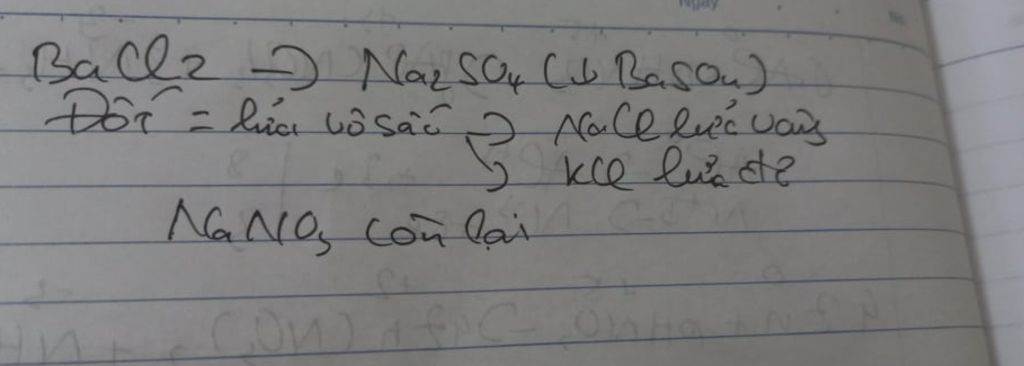 BaCl2 → Na2SO4 (↓ BaSO4)
Đốt = lửa vô sắc → NaCl lửa vàng
↳ KCl lửa
NaNO3 còn lại